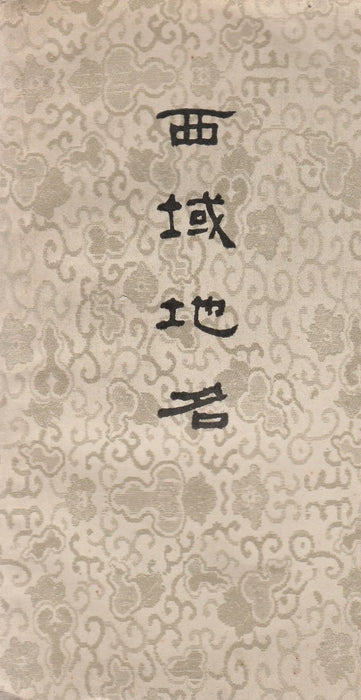 西域地名